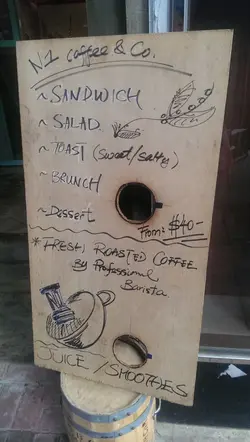 N1 coffee & Co.
~SANDWICH
~SALAD
~TOAST (sweet/salty)
~BRUNCH
~Dessert
From: $40-
*FRESH ROASTED COFFEE
By Professional
Barista
JUICE / SMOOTHIES